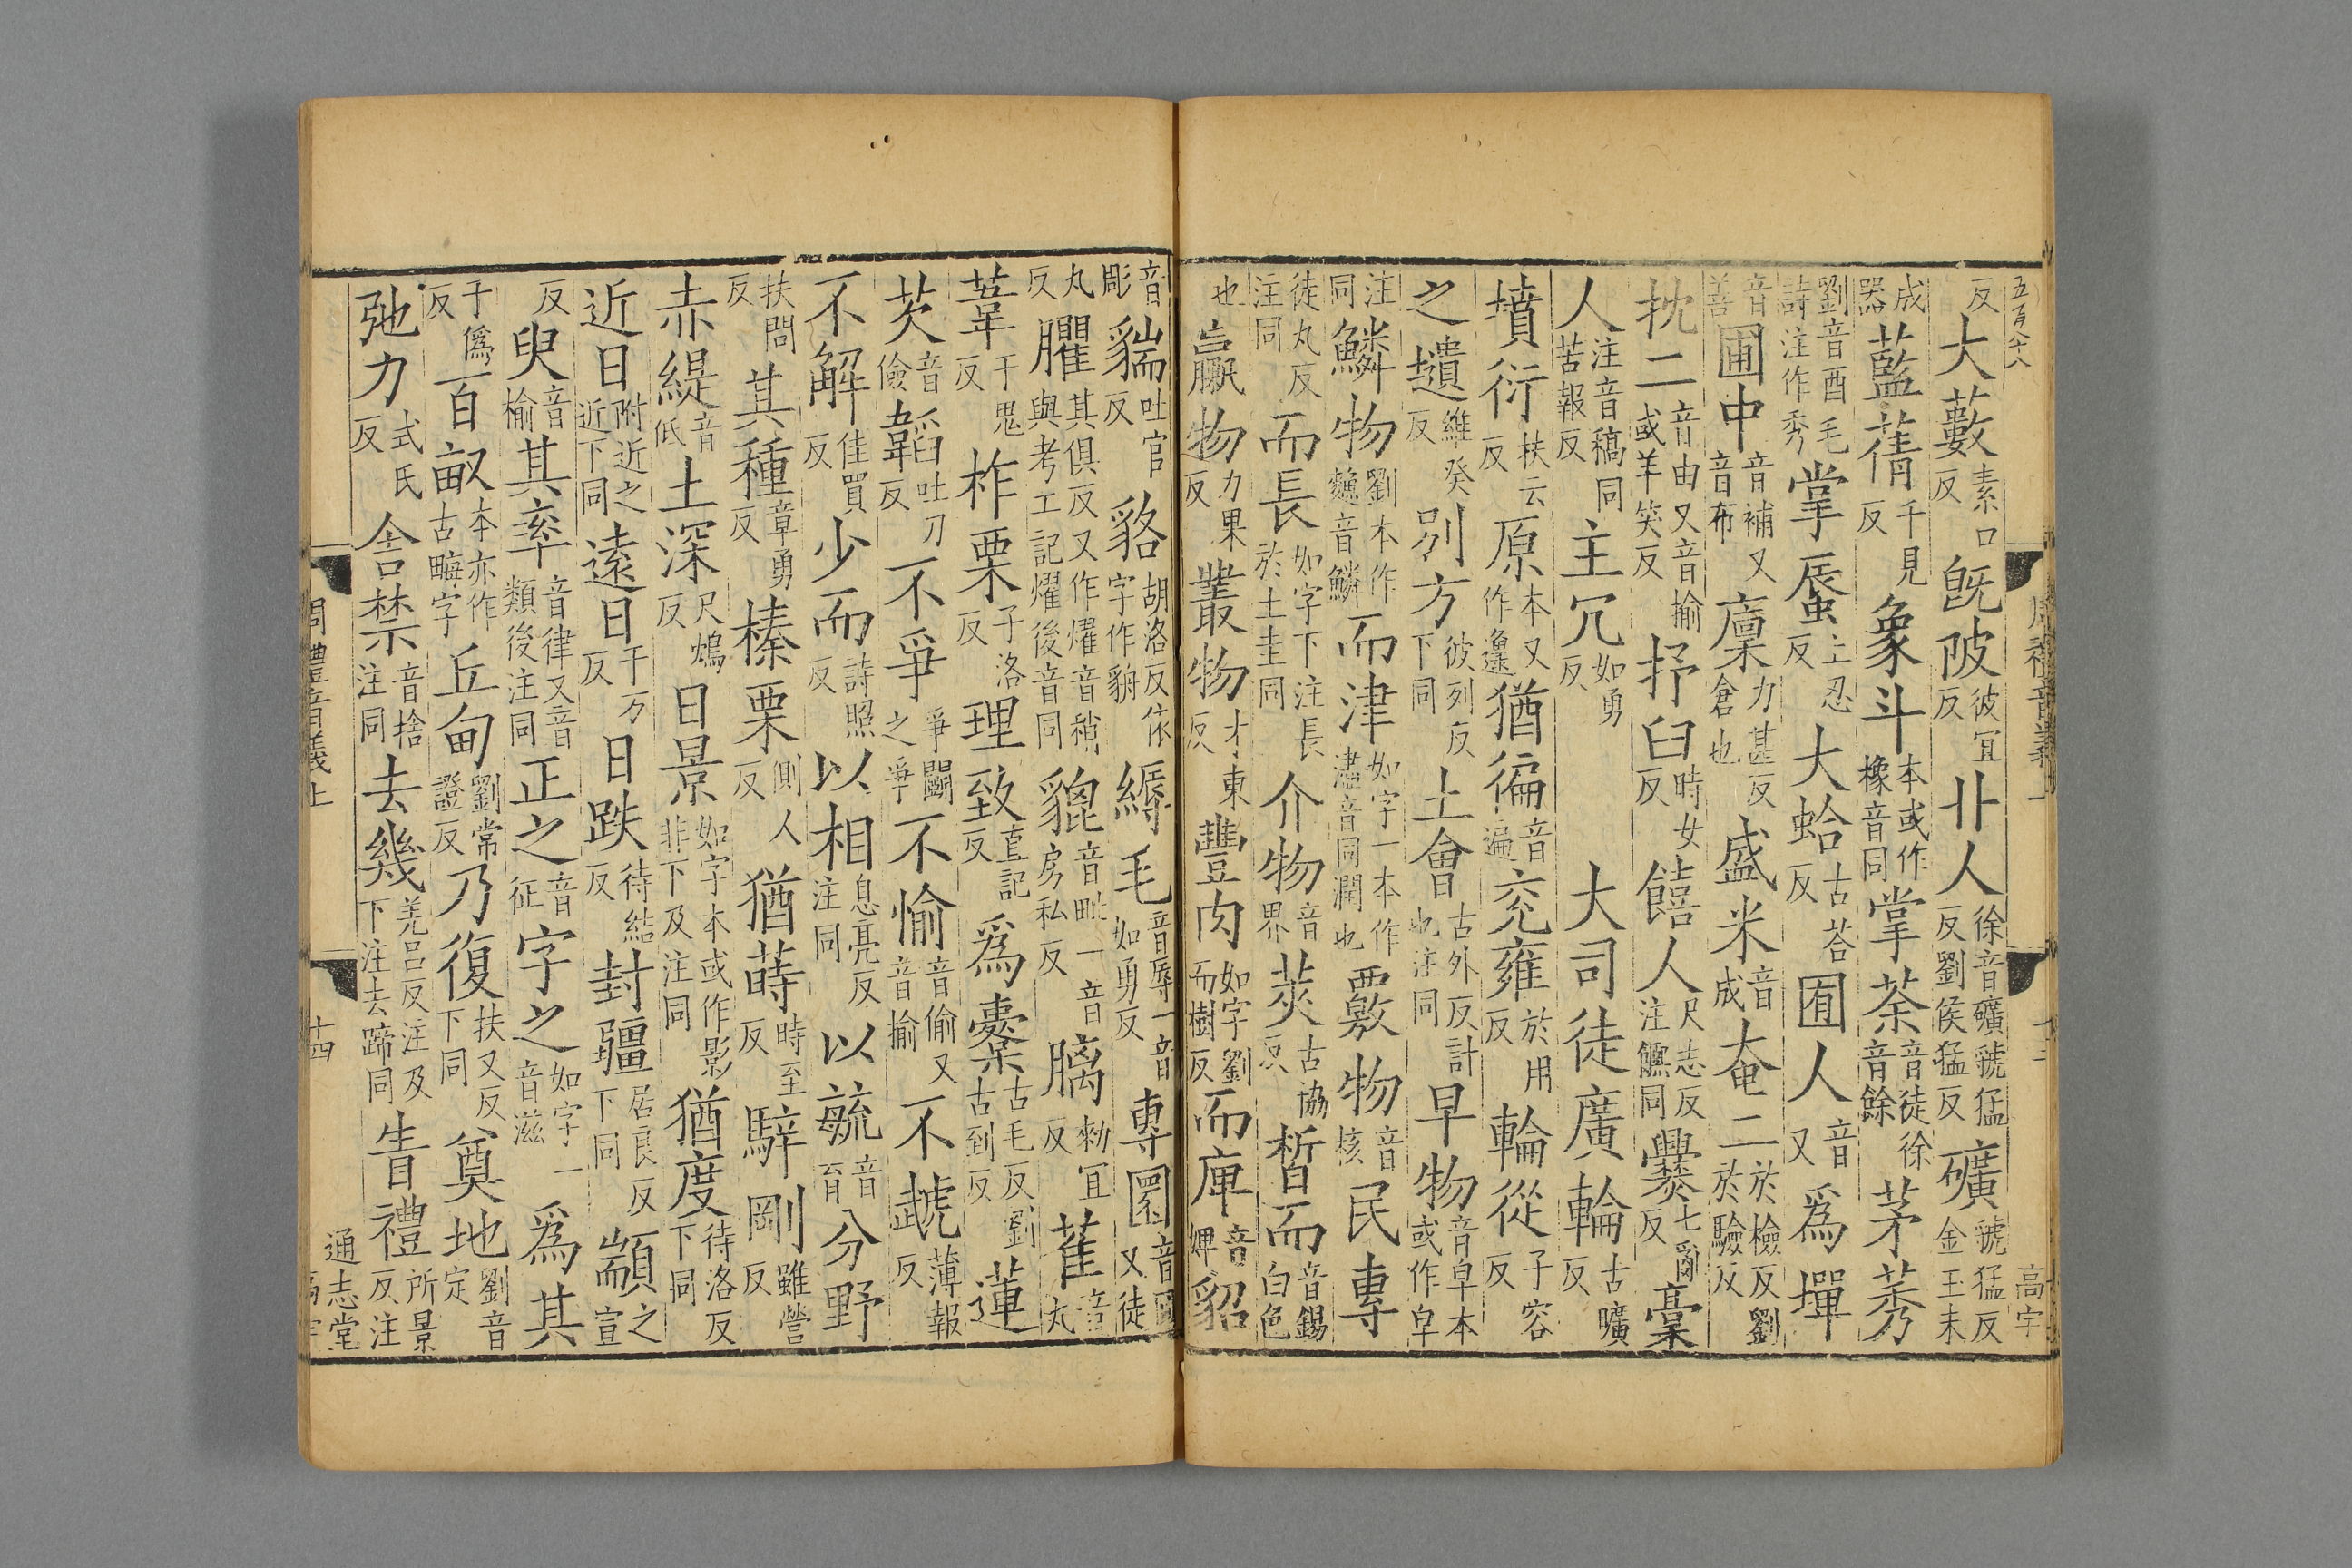 五百六八
反大藪素口反既陂彼宜反丱人徐音礦虢猛反劉侯猛反礦虢猛反金玉未
成器藍蒨千見反象斗本或作橡音同掌荼音徒徐音餘茅莠
劉音酉毛詩注作秀掌蜃上忍反大蛤古荅反囿人音又爲墠
音善圃中音補又音布廩力甚反倉也盛米音成奄二於檢反劉於驗反
抌二音由又音揄或羊笑反抒臼時女反饎人尺志反注䊠同爨七亂反槀
人注音稿同苦報反主冗如勇反 大司徒廣輪古曠反
墳衍扶云反原本又作邍猶徧音遍兖雍於用反輪從子容反
之壝維癸反別方彼列反下同土會古外反計也注同早物音皁本或作皁
注同鱗物劉本作䲞音鱗而津如字一本作濜音同潤也覈物音核民專
徒丸反注同而長如字下注長於土圭同介物音界莢古協反晳而音錫白色
也臝物力果反叢物才東反豐肉如字劉而樹反而庳音婢貂
音彫貒吐官反貉胡洛反依字作貈縟毛音辱一音如勇反專圜音圓又徒
丸反臞其俱反又作燿音稍與考工記燿後音同貔音毗一音房私反膬勑宜反萑音丸
葦于鬼反柞栗子洛反理致直記反爲櫜古毛反劉古到反蓮
芡音儉韜吐刀反不爭爭鬭之爭不愉音偷又音揄不虣薄報反
不解佳買反少而詩照反以相息亮反注同以毓音育分野
扶問反其種章勇反榛栗側人反猶蒔時至反騂剛雖營反
赤緹音低土深尺鴆反日景如字本或作影非下及注同猶度待洛反下同
近日附近之近下同遠日于万反日跌待結反封疆居良反下同顓之宣
反臾音榆其率音律又音類後注同正之音征字之如字一音滋爲其
于僞反百畝本亦作古畮字丘甸劉常證反乃復扶又反下同奠地劉音定
弛力式氏反舍禁音捨注同去幾羌呂反注及下注去蹄同眚禮所景反注
周禮音義上
十四
通志堂
周禮音義上
十三
高宇